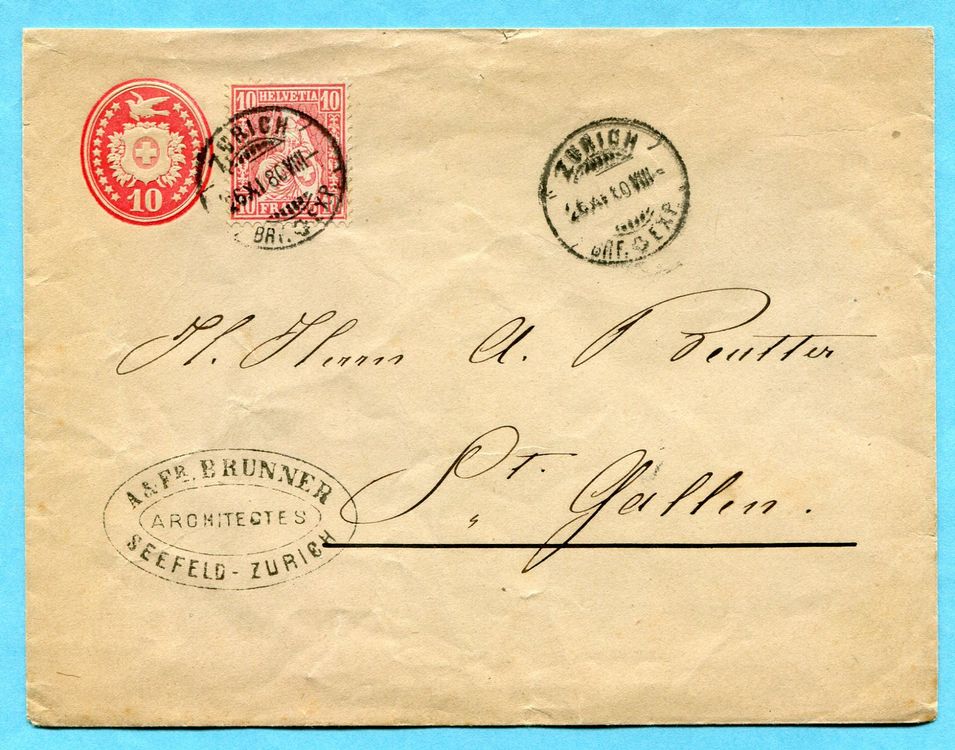 10
10 HELVETIA 10
10 FRANCO
ZÜRICH
26 XI 80 VIII
BRF. EXP.
ZÜRICH
26 XI 80 VIII
BRF. EXP.
H. Herrn A. Beutter
St. Gallen.
A & FR. BRUNNER
ARCHITECTES
SEEFELD - ZURICH